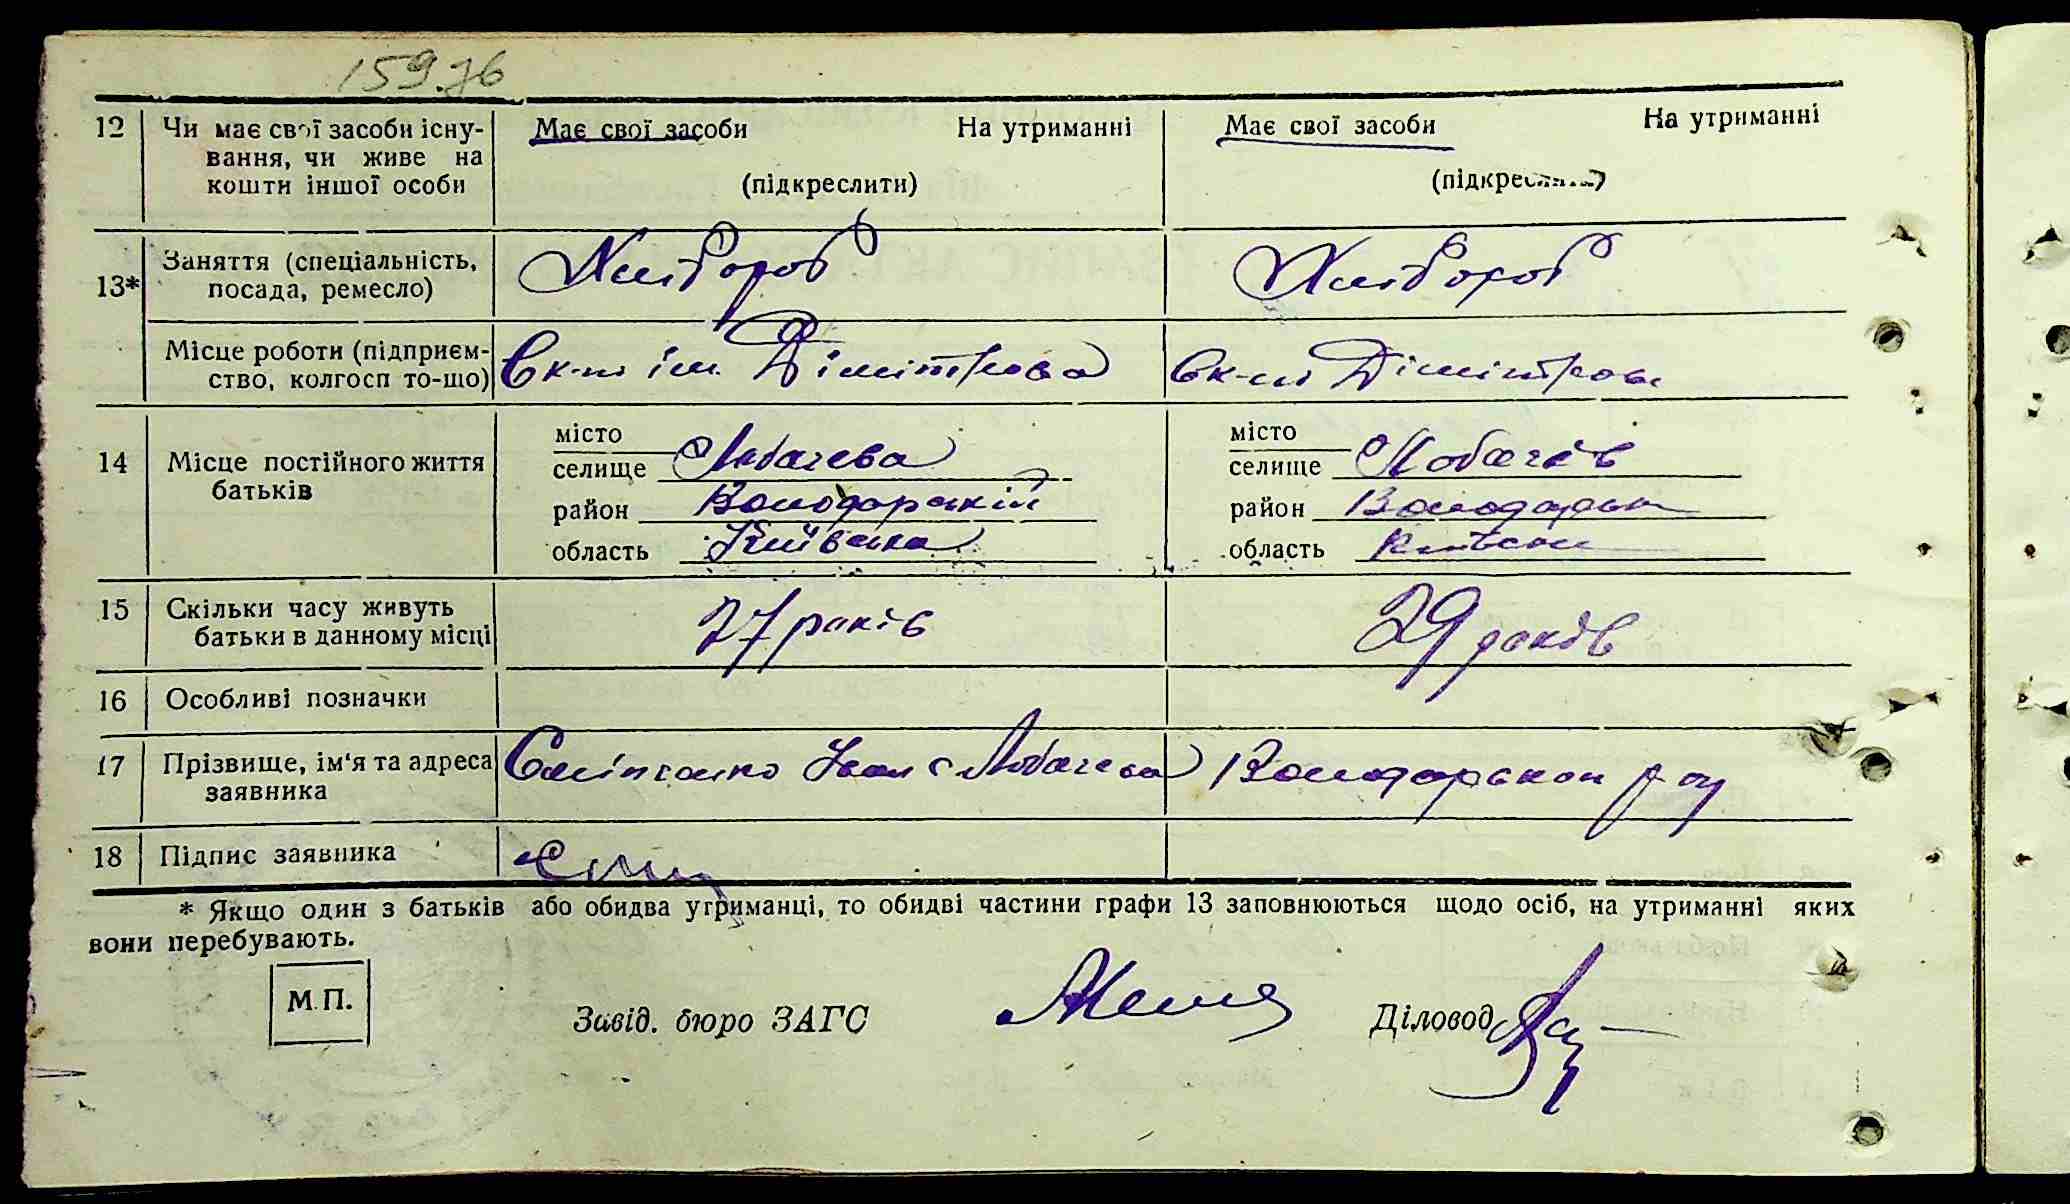 159.76
12 Чи має свої засоби існу- Має свої засоби На утриманні Має свої засоби На утриманні
вання, чи живе на
кошти іншої особи (підкреслити) (підкреслити)
13* Заняття (спеціальність, Хлібороб Хлібороб
посада, ремесло)
Місце роботи (підприєм- В к-пі ім. Дімітрова В к-пі Дімітрова
ство, колгосп то-що)
місто місто
14 Місце постійного життя селище Лобачева селище Лобачів
батьків район Володарський район Володарськ
область Київська область Київськ
15 Скільки часу живуть 27 років 29 років
батьки в данному місці
16 Особливі позначки
17 Прізвище, ім'я та адреса Іван с Лобачева Володарськон р-ну
заявника
18 Підпис заявника
* Якщо один з батьків або обидва утриманці, то обидві частини графи 13 заповнюються щодо осіб, на утриманні яких
вони перебувають.
М.П.
Завід. бюро ЗАГС Діловод